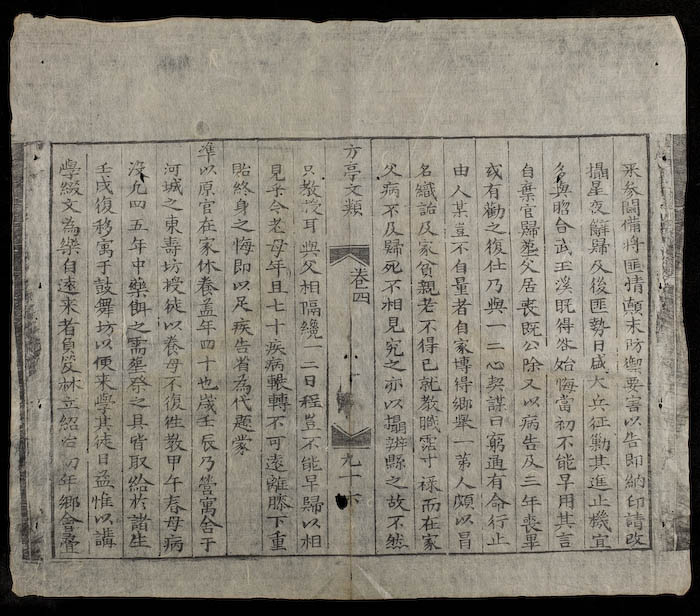 采參闘備將匪情顛末防禦要害以告即納印請改
攝星夜辭歸及後匪勢日盛大兵征勦其進止機宜
多與昭合武玉溪既得欲始悔當初不能早用其言
自棄官歸塟父居喪既公除又以病告及三年喪畢
或有勸之復仕乃與一二心契謀曰窮通有命行止
由人某豈不自量者自家博得鄉舉一第人頗以冒
名織詒及家貧親老不得已就教職霑寸祿而在家
父病不及歸死不相見究之亦以攝辦縣之故不然
方亭文類
卷四
九十六
只教授耳與父相隔纔一二日程豈不能早歸以相
見乎今老母年且七十疾病輾轉不可遠離膝下重
貽終身之悔即以足疾告省為代題蒙
準以原官在家休養盖年四十也歲壬辰乃營寓舍于
河城之東壽坊授徒以養母不復徃教甲午春母病
沒九四五年中藥餌之需塟祭之具皆取給於諸生
壬戌復移寓于鼓舞坊以便来學其徒日益惟以講
學綴文為樂自遠来者負笈林立紹治初年鄉會疊